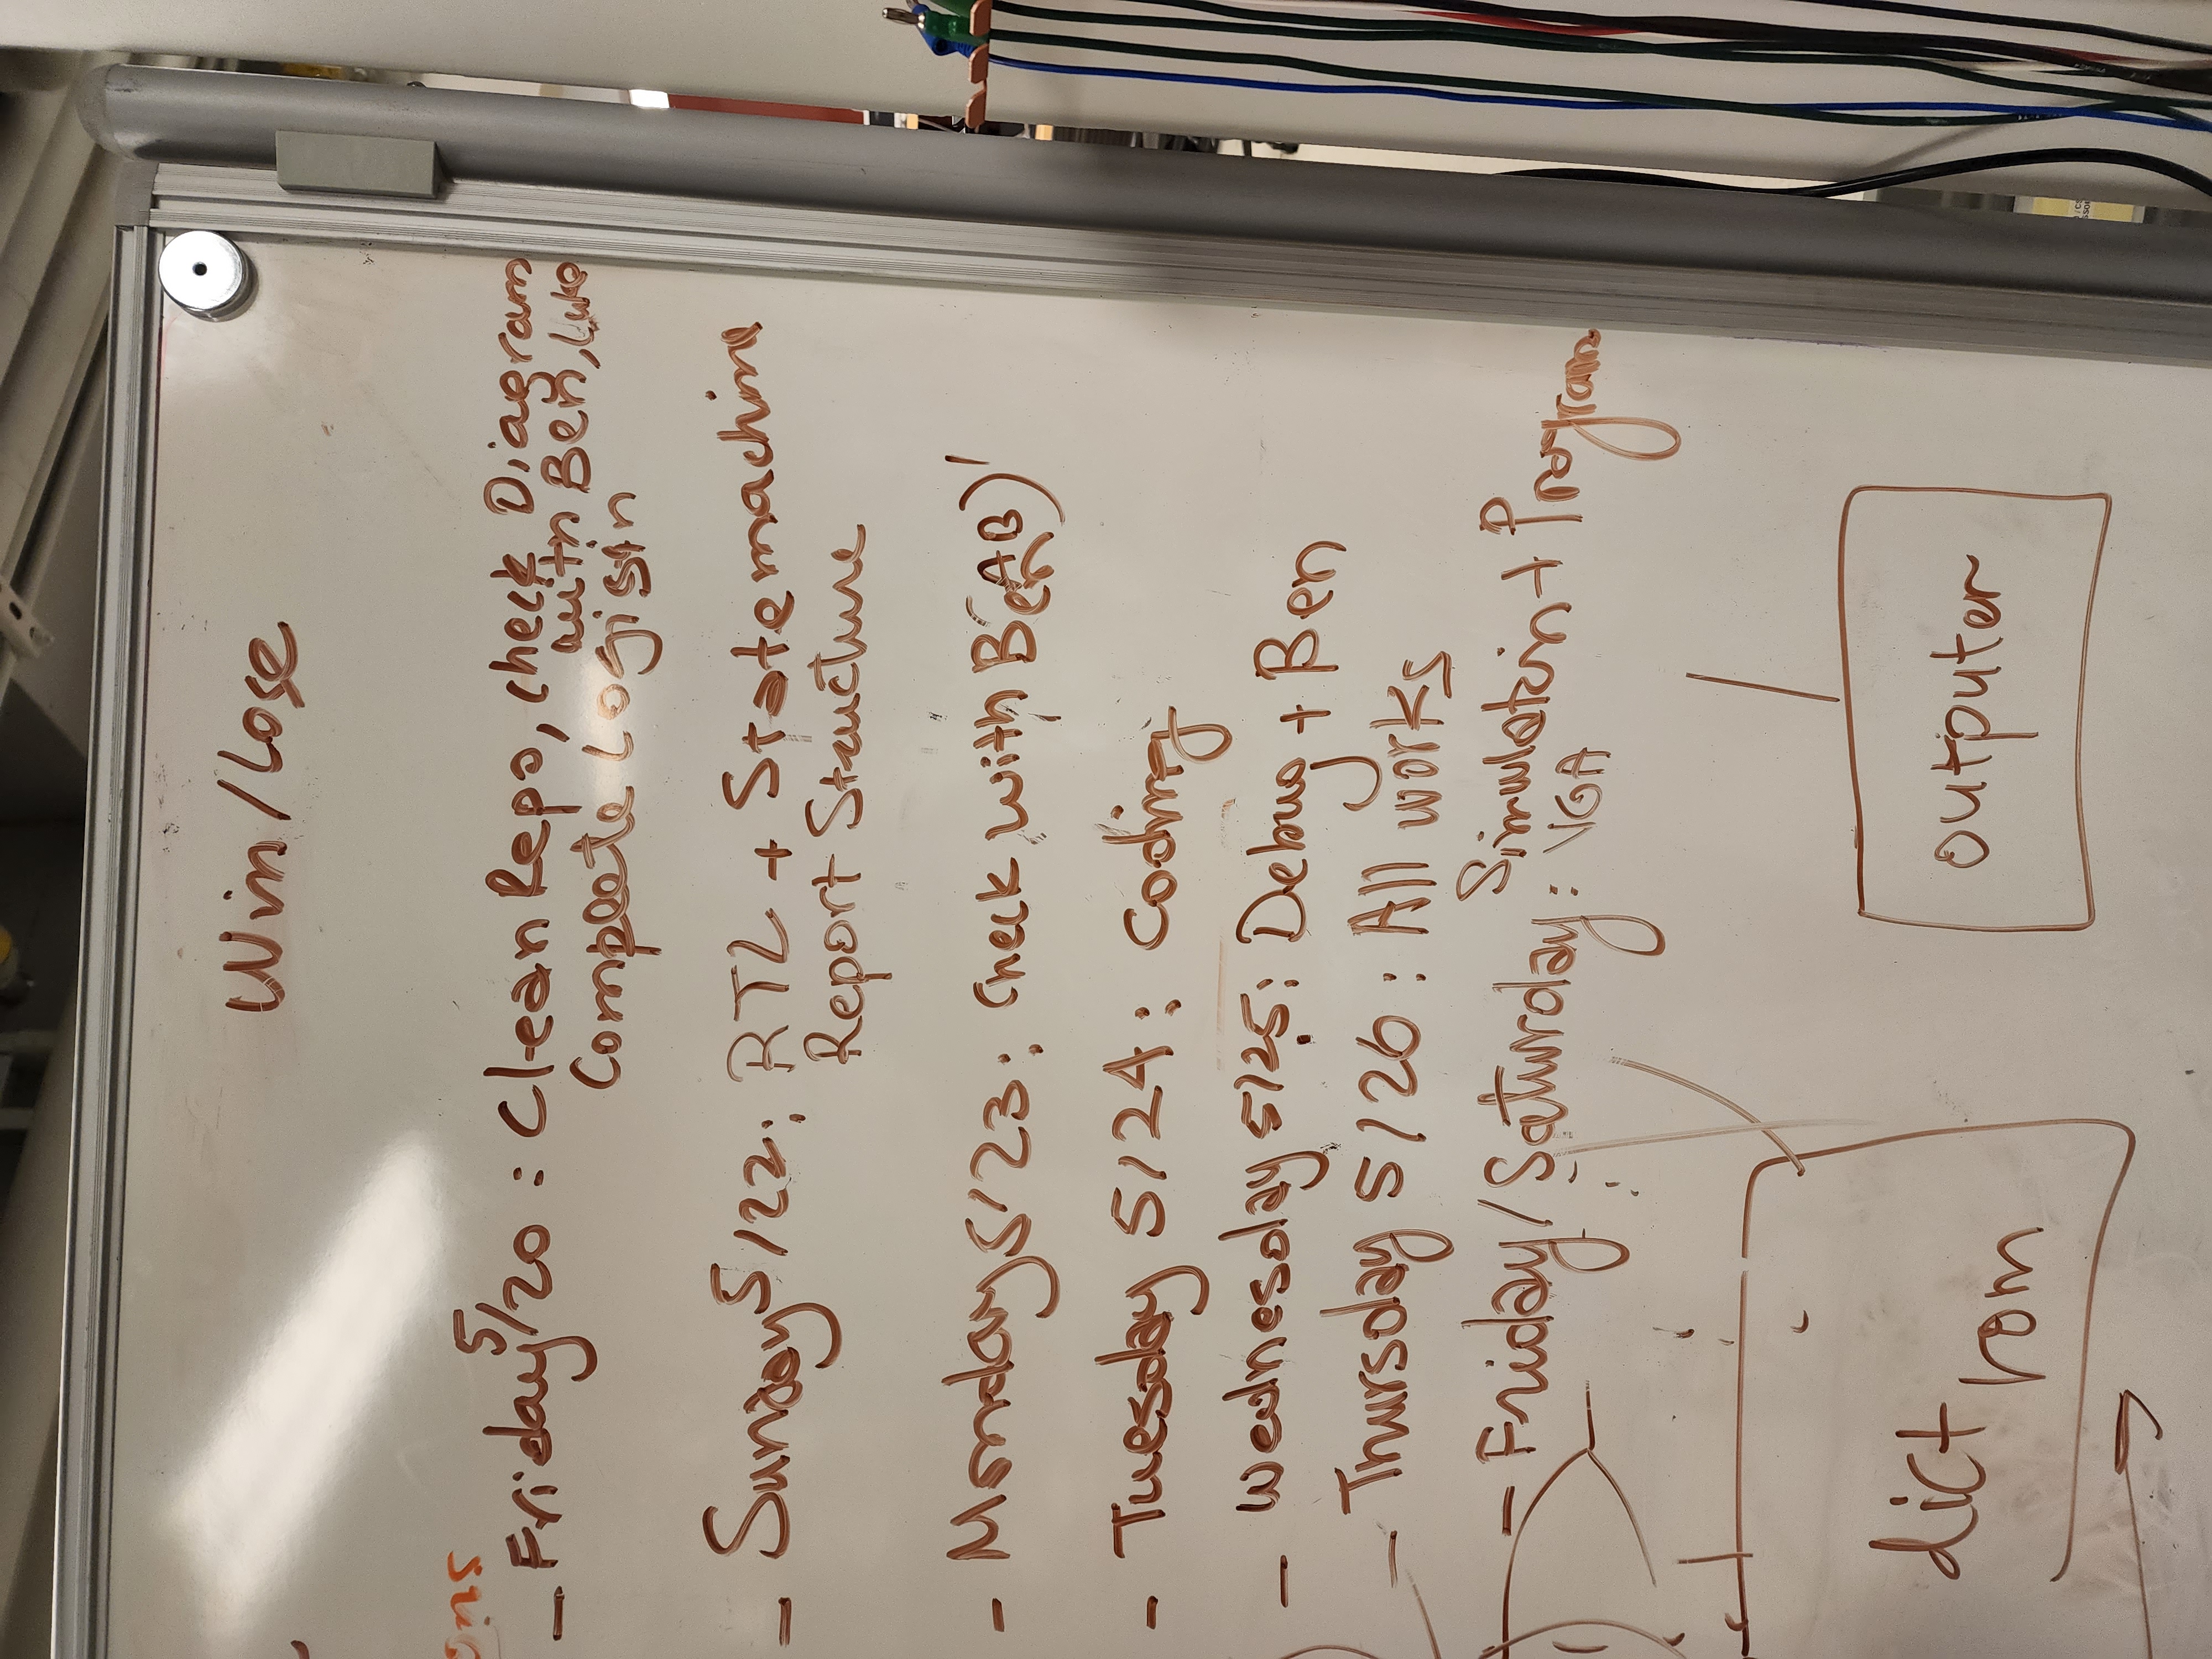 Win/Lose
ons
- Friday 5/20 : Clean Repo, check Diagram
with Ben, Luke
Complete Logisin
- Sunday 5/22: RTL + State machine
Report Structure
- Monday 5/23: Check with Ben (AB)'
- Tuesday 5/24: Coding
- Wednesday 5/25: Debug + Ben
- Thursday 5/26: All works
- Friday/Saturday: Simulation + Program
VGA
dict rom
outputer